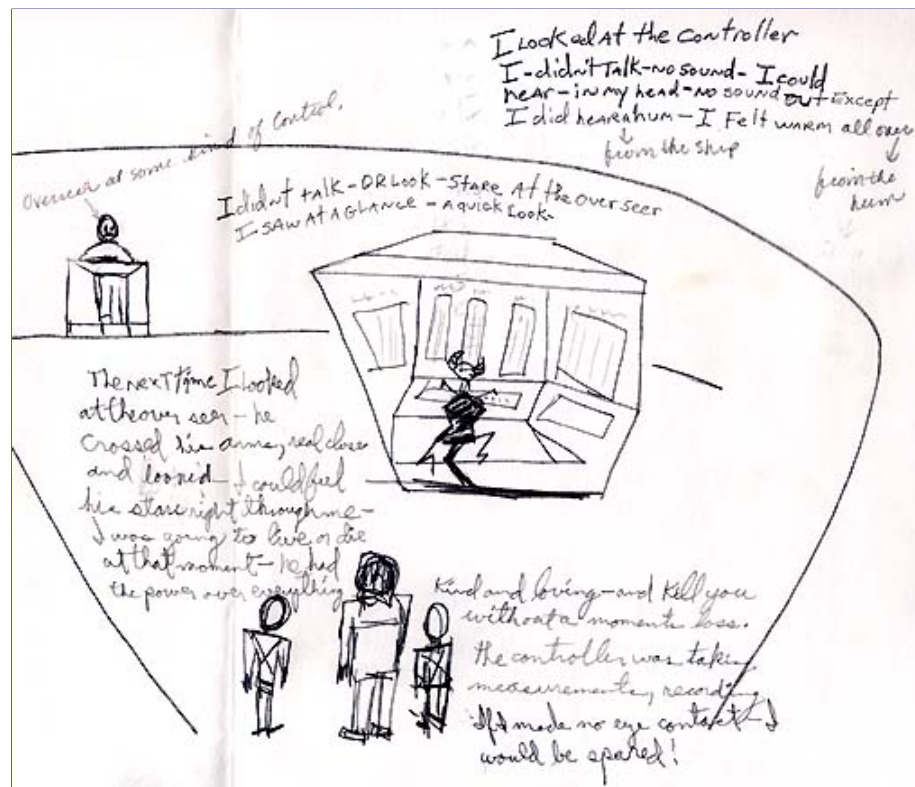 I Looked At the Controller
I-didn't TALK-NO SOUND- I could
hear-IN my head-NO SOUND OUT Except
I did hear a hum-I Felt WARM all over
from the ship
from the
hum
Overseer at some kind of Control.
I didn't TALK-OR LOOK-STARE At the Over seer
I SAW AT A GLANCE - A QUICK LOOK-
The Next Time I Looked
at the over seer - he
Crossed his arms, real close
and looked- I could feel
his stare right through me-
I was going to live or die
at that moment- he had
the power over everything
Kind and loving-and Kill you
without a moments loss.
the controller was taking
measurements, recording
If I made no eye contact-I
would be spared!